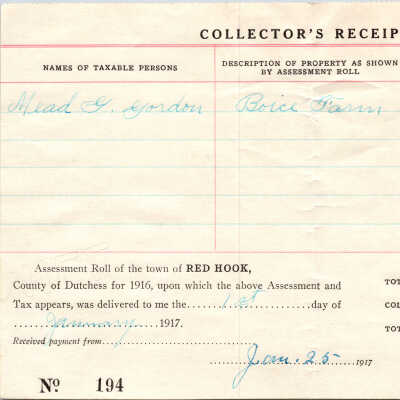 COLLECTOR'S RECEIP
NAMES OF TAXABLE PERSONS
DESCRIPTION OF PROPERTY AS SHOWN
BY ASSESSMENT ROLL
Mead G. Gordon Boice Farm
Assessment Roll of the town of RED HOOK,
County of Dutchess for 1916, upon which the above Assessment and
Tax appears, was delivered to me the.......1st.......day of
.......January.......1917.
Received payment from
Jan. 25 1917
TOT
COL
TOT
No 194